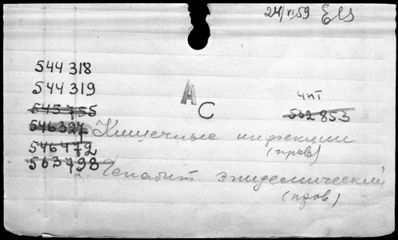 24/VI 59
544 318
544 319
А
545 755
чит
С
502 853
546 327
Кишечные инфекции
(пров)
546 472
563 793
Гепатит эпидемический
(пров)